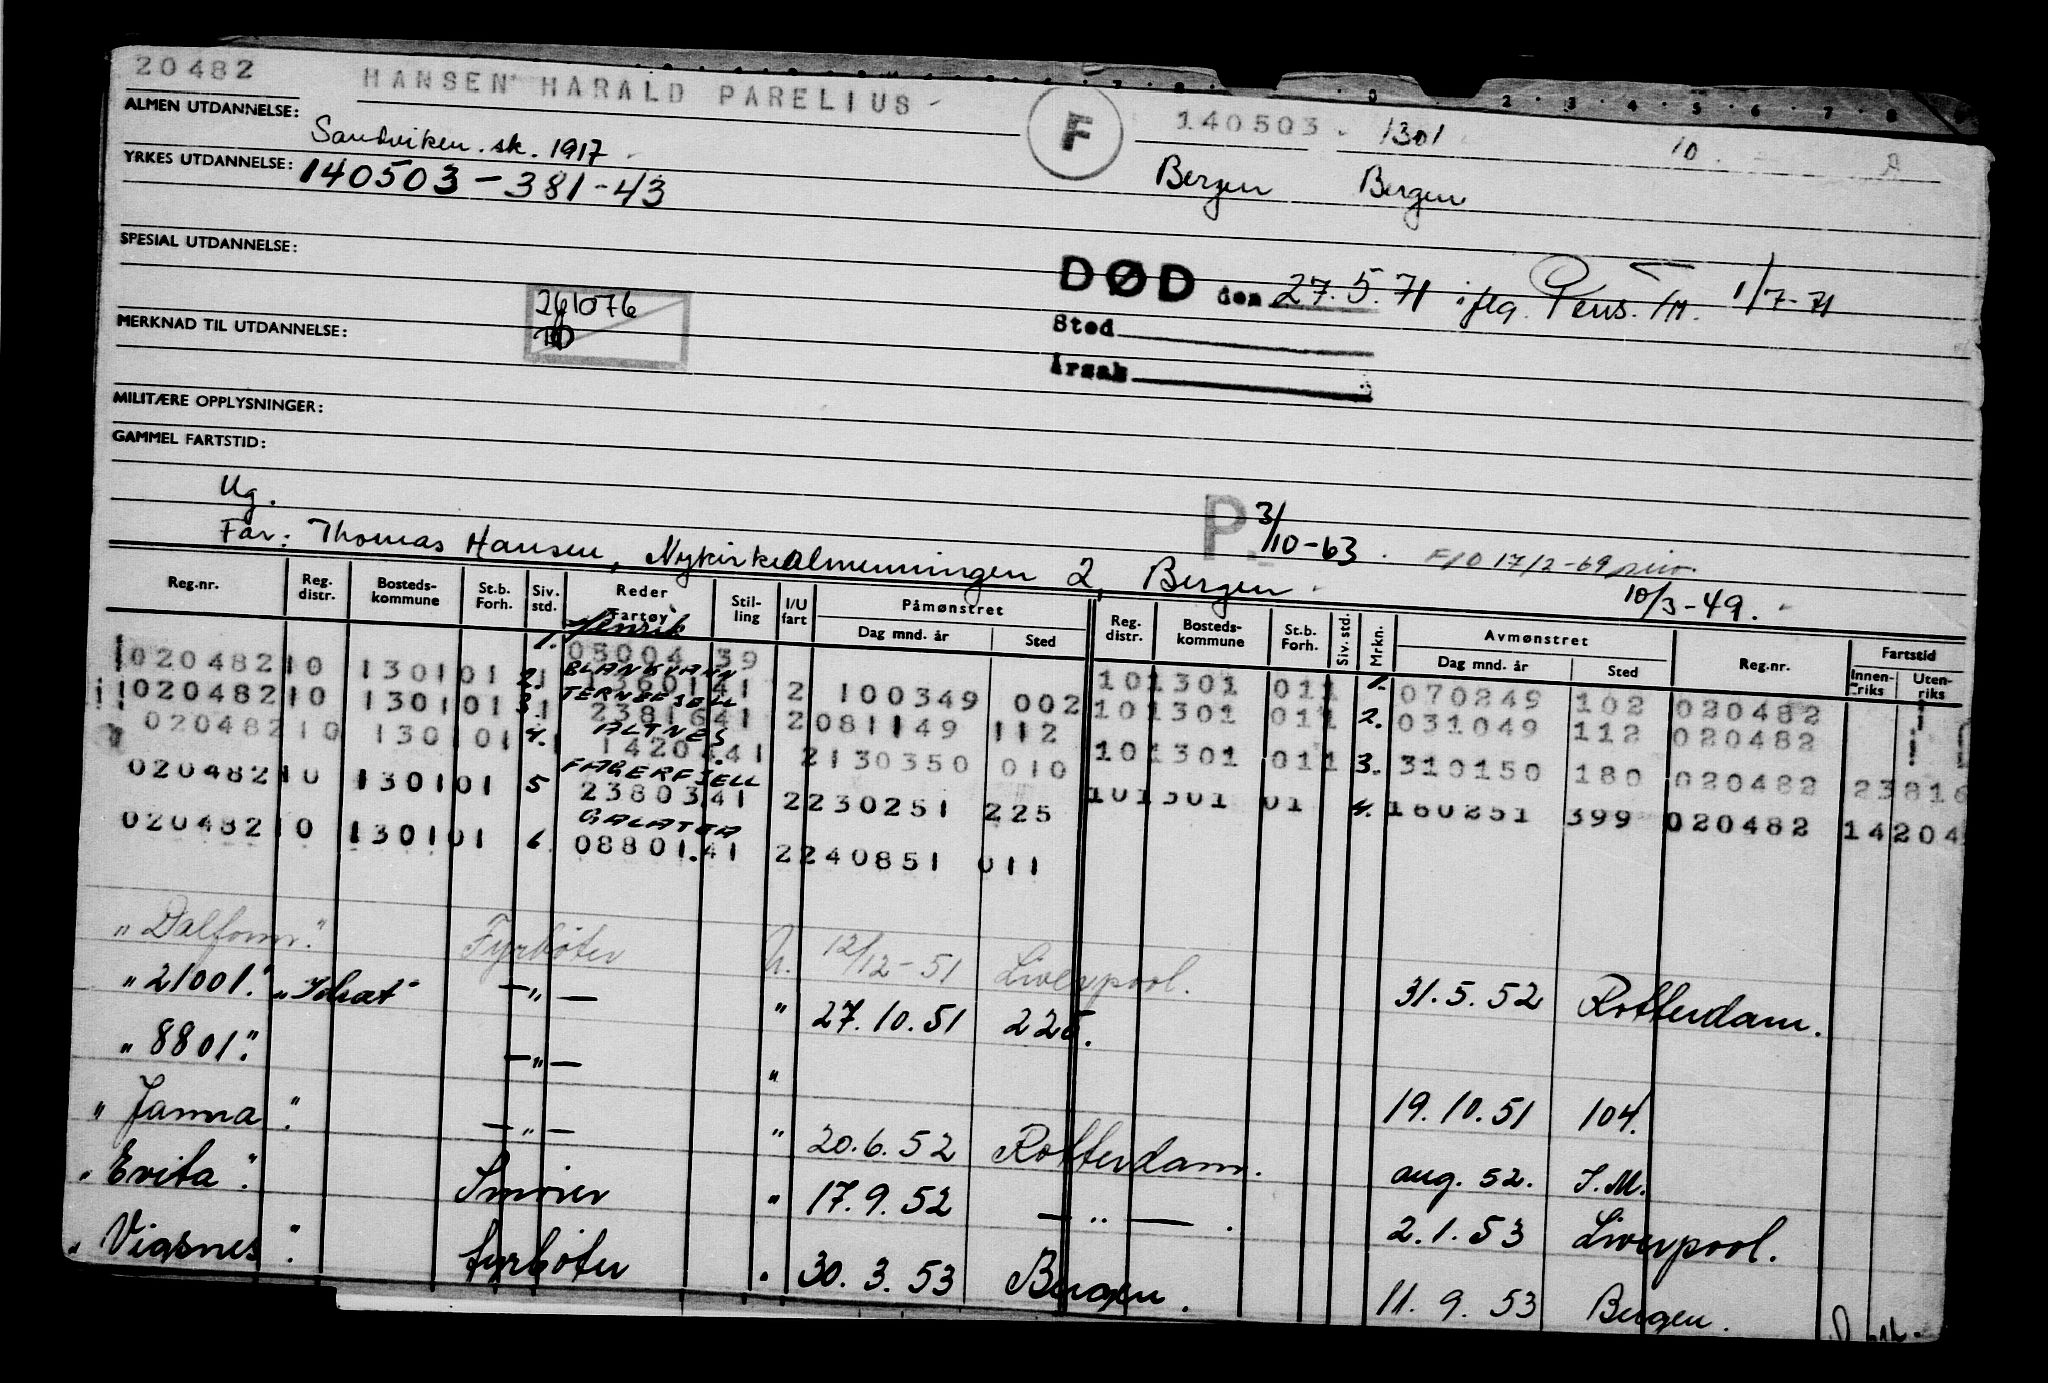 20482 HANSEN HARALD PARELIUS F 140503 1301 10
ALMEN UTDANNELSE: Sandviken. sk. 1917
Bergen Bergen
YRKES UTDANNELSE: 140503-381-43
SPESIAL UTDANNELSE:
DØD den 27.5.71 iflg. Pens. 1/7-71
261076
Sted
MERKNAD TIL UTDANNELSE:
Årsak
MILITÆRE OPPLYSNINGER:
GAMMEL FARTSTID:
Ug. P. 3/10-63
Far: Thomas Hansen, Nykirkealmenningen 2, Bergen F/O 17/2-69 10/3-49.
Reg.nr. Reg. distr. Bosteds-kommune St.b. Forh. Siv. std. Reder Fartøy Stil-ling I/U fart Påmønstret Dag mnd. år Sted Reg. distr. Bosteds-kommune St.b. Forh. Siv. std. Mrkn. Avmønstret Dag mnd. år Sted Reg.nr. Fartstid Innen-riks Uten-riks
1. Henrik
05004 39 101301 011 1. 070249 102 020482
1020482 10 1301 01 1 2. BLANKVANN
41 2 100349 002 101301 011 2. 031049 112 020482
1020482 10 1301 01 1 3. TERNEFJELL
23816 41 2 081149 112 101301 011 3. 310150 180 020482 23816
020482 10 1301 01 4. ALTNES
14204 41 2 130350 010 101301 01 4. 160251 399 020482 14204
020482 10 1301 01 5 FAGERFJELL
23803 41 2 230251 225
020482 10 1301 01 6. GALATEA
08801. 41 2 240851 011
"Dalfonn". Fyrbøter U. 12/12-51 Liverpool. 31.5.52 Rotterdam.
"21001". — " — " 27.10.51 225.
"8801". — " — " 19.10.51 104.
"Janna". — " — " 20.6.52 Rotterdam. aug. 52. I.M.
"Evita". Smører " 17.9.52 — " — . 2.1.53 Liverpool.
"Vigsnes". fyrbøter " 30.3.53 Bergen. 11.9.53 Bergen.